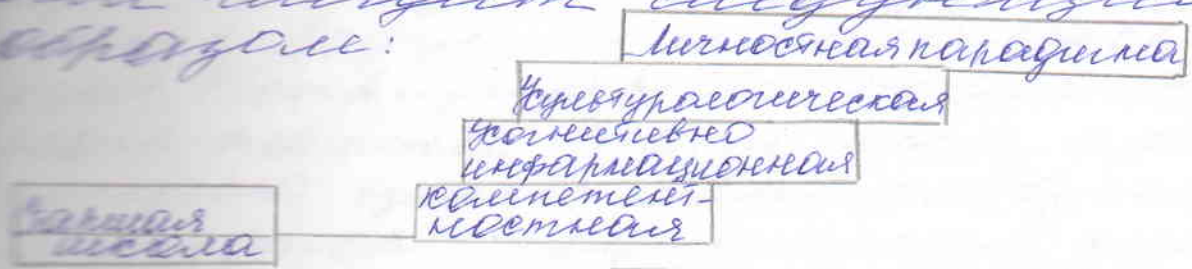 образом:
Личностная парадигма
Культурологическая
Когнитивно
информационная
компетент-
ностная
школа